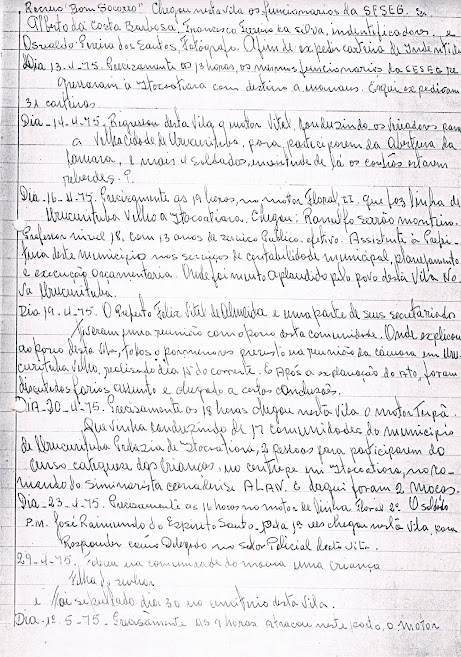 Recreio "Bom Socorro" Chegou nesta vila os funcionarios da SESEG. Sr.
Alberto da Costa Barbosa, Francisco Ferreira da Silva, indentificadores, e
Osvaldo Freira dos Santos, Fotografo. Afim de expedir carteira de Indentidade
Dia 13-4-75. Precisamente as 13 horas, os mesmos funcionarios da SESEG re
gressaram a Itacoatiara com destino a manaus. E aqui expediram
31 carteiras
Dia - 14-4-75. Regressou desta Vila, o motor Vital, conduzindo os vriadores para
a Velha cidade de Urucurituba, para participarem da Abertura da
Camara, e mais 4 soldados, de lá os estarem
rebeldes. P.
Dia - 16-4-75. Precisamente as 19 horas, no motor Floral, II que faz linha de
Urucurituba Velho a Itacoatiara. Chegou: Ranulfo Serrão monteiro.
Professor nivel 18, com 13 anos de servico Publico. efetivo. Assistente à Prefei-
tura deste municipio nos serviços de contabilidade municipal, planejamento
e execução orçamentaria. Onde foi muito aplaudido pelo povo desta Vila No
va Urucurituba.
Dia 19-4-75. O Prefeito Felix Vital de Almeida e uma parte de seus secretariados
Tiveram uma reunião com o povo desta comunidade. Onde explicou
ao povo desta vila, todos o pormenores previsto na reunião da câmara em Uru
curituba Velho, realizado dia 15 do corrente. E após a explanação do Ato, foram
discutidos varios assunto e chegado a certas conclusões.
DIA-20-4-75. Precisamente as 18 horas chegou nesta vila. o motor Tupã.
Que vinha conduzindo de 17 comunidades do municipio
de Urucurituba e de Itacoatiara, 2 pessoas para participarem do
curso catequese das crianças, no centrope em Itacoatiara, no co-
mando do Siminarista canadense ALAN. E daqui foram 2 moças.
Dia-23-4-75. Precisamente as 16 horas no motor de linha Floral 2º. O soldado
P.M. José Raimundo do Espirito Santo, pela 1ª vez chegou nesta vila, para
Responder como Delegado no Setor Policial desta vila.
29-4-75. Faleceu na comunidade do moura uma criança
Filha do senhor
e foi sepultado dia 30 no cemiterio desta vila.
Dia-1º.5-75-Precisamente as 9 horas atracou neste porto, o motor